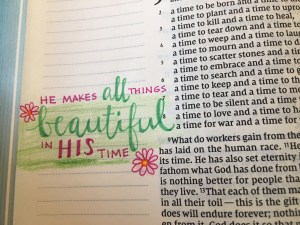 HE MAKES all THINGS
beautiful
IN HIS TIME
a time to be born and a time to
a time to plant and a time to upro
a time to kill and a time to heal,
a time to tear down and a time to
a time to weep and a time to laug
a time to mourn and a time to d
a time to scatter stones and a time
a time to embrace and a time to
a time to search and a time to g
a time to keep and a time to th
a time to tear and a time to m
a time to be silent and a time to
a time to love and a time to ha
a time for war and a time for
⁹What do workers gain from the
has laid on the human race. ¹¹He h
its time. He has also set eternity
fathom what God has done from
is nothing better for people tha
they live. ¹³That each of them ma
in all their toil—this is the gift
does will endure forever; nothin
en from it. God does it so that